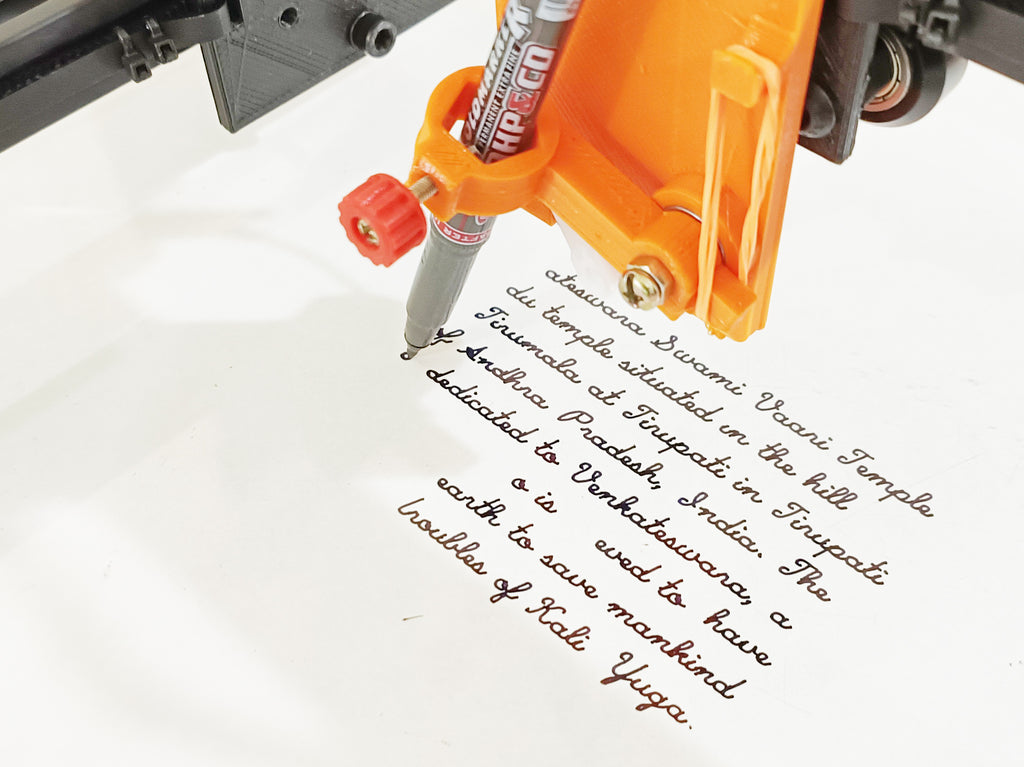 LOMARK
PERMANENT EXTRA FINE
OHP & CD
AFTER
ateswara Swami Vaari Temple
du temple situated in the hill
Tirumala at Tirupati in Tirupati
of Andhra Pradesh, India. The
dedicated to Venkateswara, a
o is eved to have
earth to save mankind
troubles of Kali Yuga.